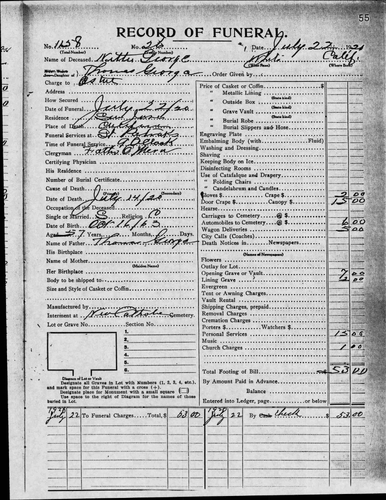 55
RECORD OF FUNERAL
No. 1158 No. 26 Date July 22 1920
Name of Deceased George White Calif.
Thomas George Order Given by
Charge to Estate
Address
How Secured
Date of Funeral July 22/20
Residence
Place of Death
Funeral Services at St. Patricks
Time of Funeral Service 9 O'Clock
Clergyman Father O'Hara
Certifying Physician
His Residence
Number of Burial Certificate
Cause of Death
Date of Death July 14/20
Occupation of the Deceased
Single or Married S Religion C
Date of Birth Oct
Years Months Days.
Name of Father Thomas George
His Birthplace
Name of Mother
(Maiden Name)
Her Birthplace
Body to be shipped to
Size and Style of Casket or Coffin
Manufactured by
Interment at New Catholic Cemetery.
Lot or Grave No. Section No.
1
2
3
4
5
6
7
8
Diagram of Lot or Vault
Designate all Graves in Lot with Numbers (1, 2, 3, 4, etc.),
and mark space for this Funeral with a cross (+).
Designate place for Monument with a small square
Use space to the right of Diagram for the names of those
buried in Lot.
Price of Casket or Coffin
" Metallic Lining
" Outside Box
" Grave Vault
" Burial Robe
" Burial Slippers and Hose
Engraving Plate
Embalming Body (with Fluid)
Washing and Dressing
Shaving
Keeping Body on Ice
Disinfecting Rooms
Use of Catafalque and Drapery
" Folding Chairs
" Candelabrum and Candles
Gloves $ Crape $ 2 00
Door Crape $ Canopy 15 00
Hearse
Carriages to Cemetery @ $
Automobiles to Cemetery @ $ 6 00
Wagon Deliveries 5 00
City Calls (Coaches)
Death Notices in Newspapers
(Names of Newspapers)
Flowers
Outlay for Lot
Opening Grave or Vault 7 00
Lining Grave 2 00
Evergreen
Tent or Awning Charges
Vault Rental
Shipping Charges, prepaid
Removal Charges
Cremation Charges
Porters $ Watchers $
Personal Services 15 00
Music
Church Charges 1 00
Total Footing of Bill 53 00
By Amount Paid in Advance
Balance
Entered into Ledger, page or below.
1920 July 22 To Funeral Charges Total, $ 53.00 1920 July 22 By check $ 53.00